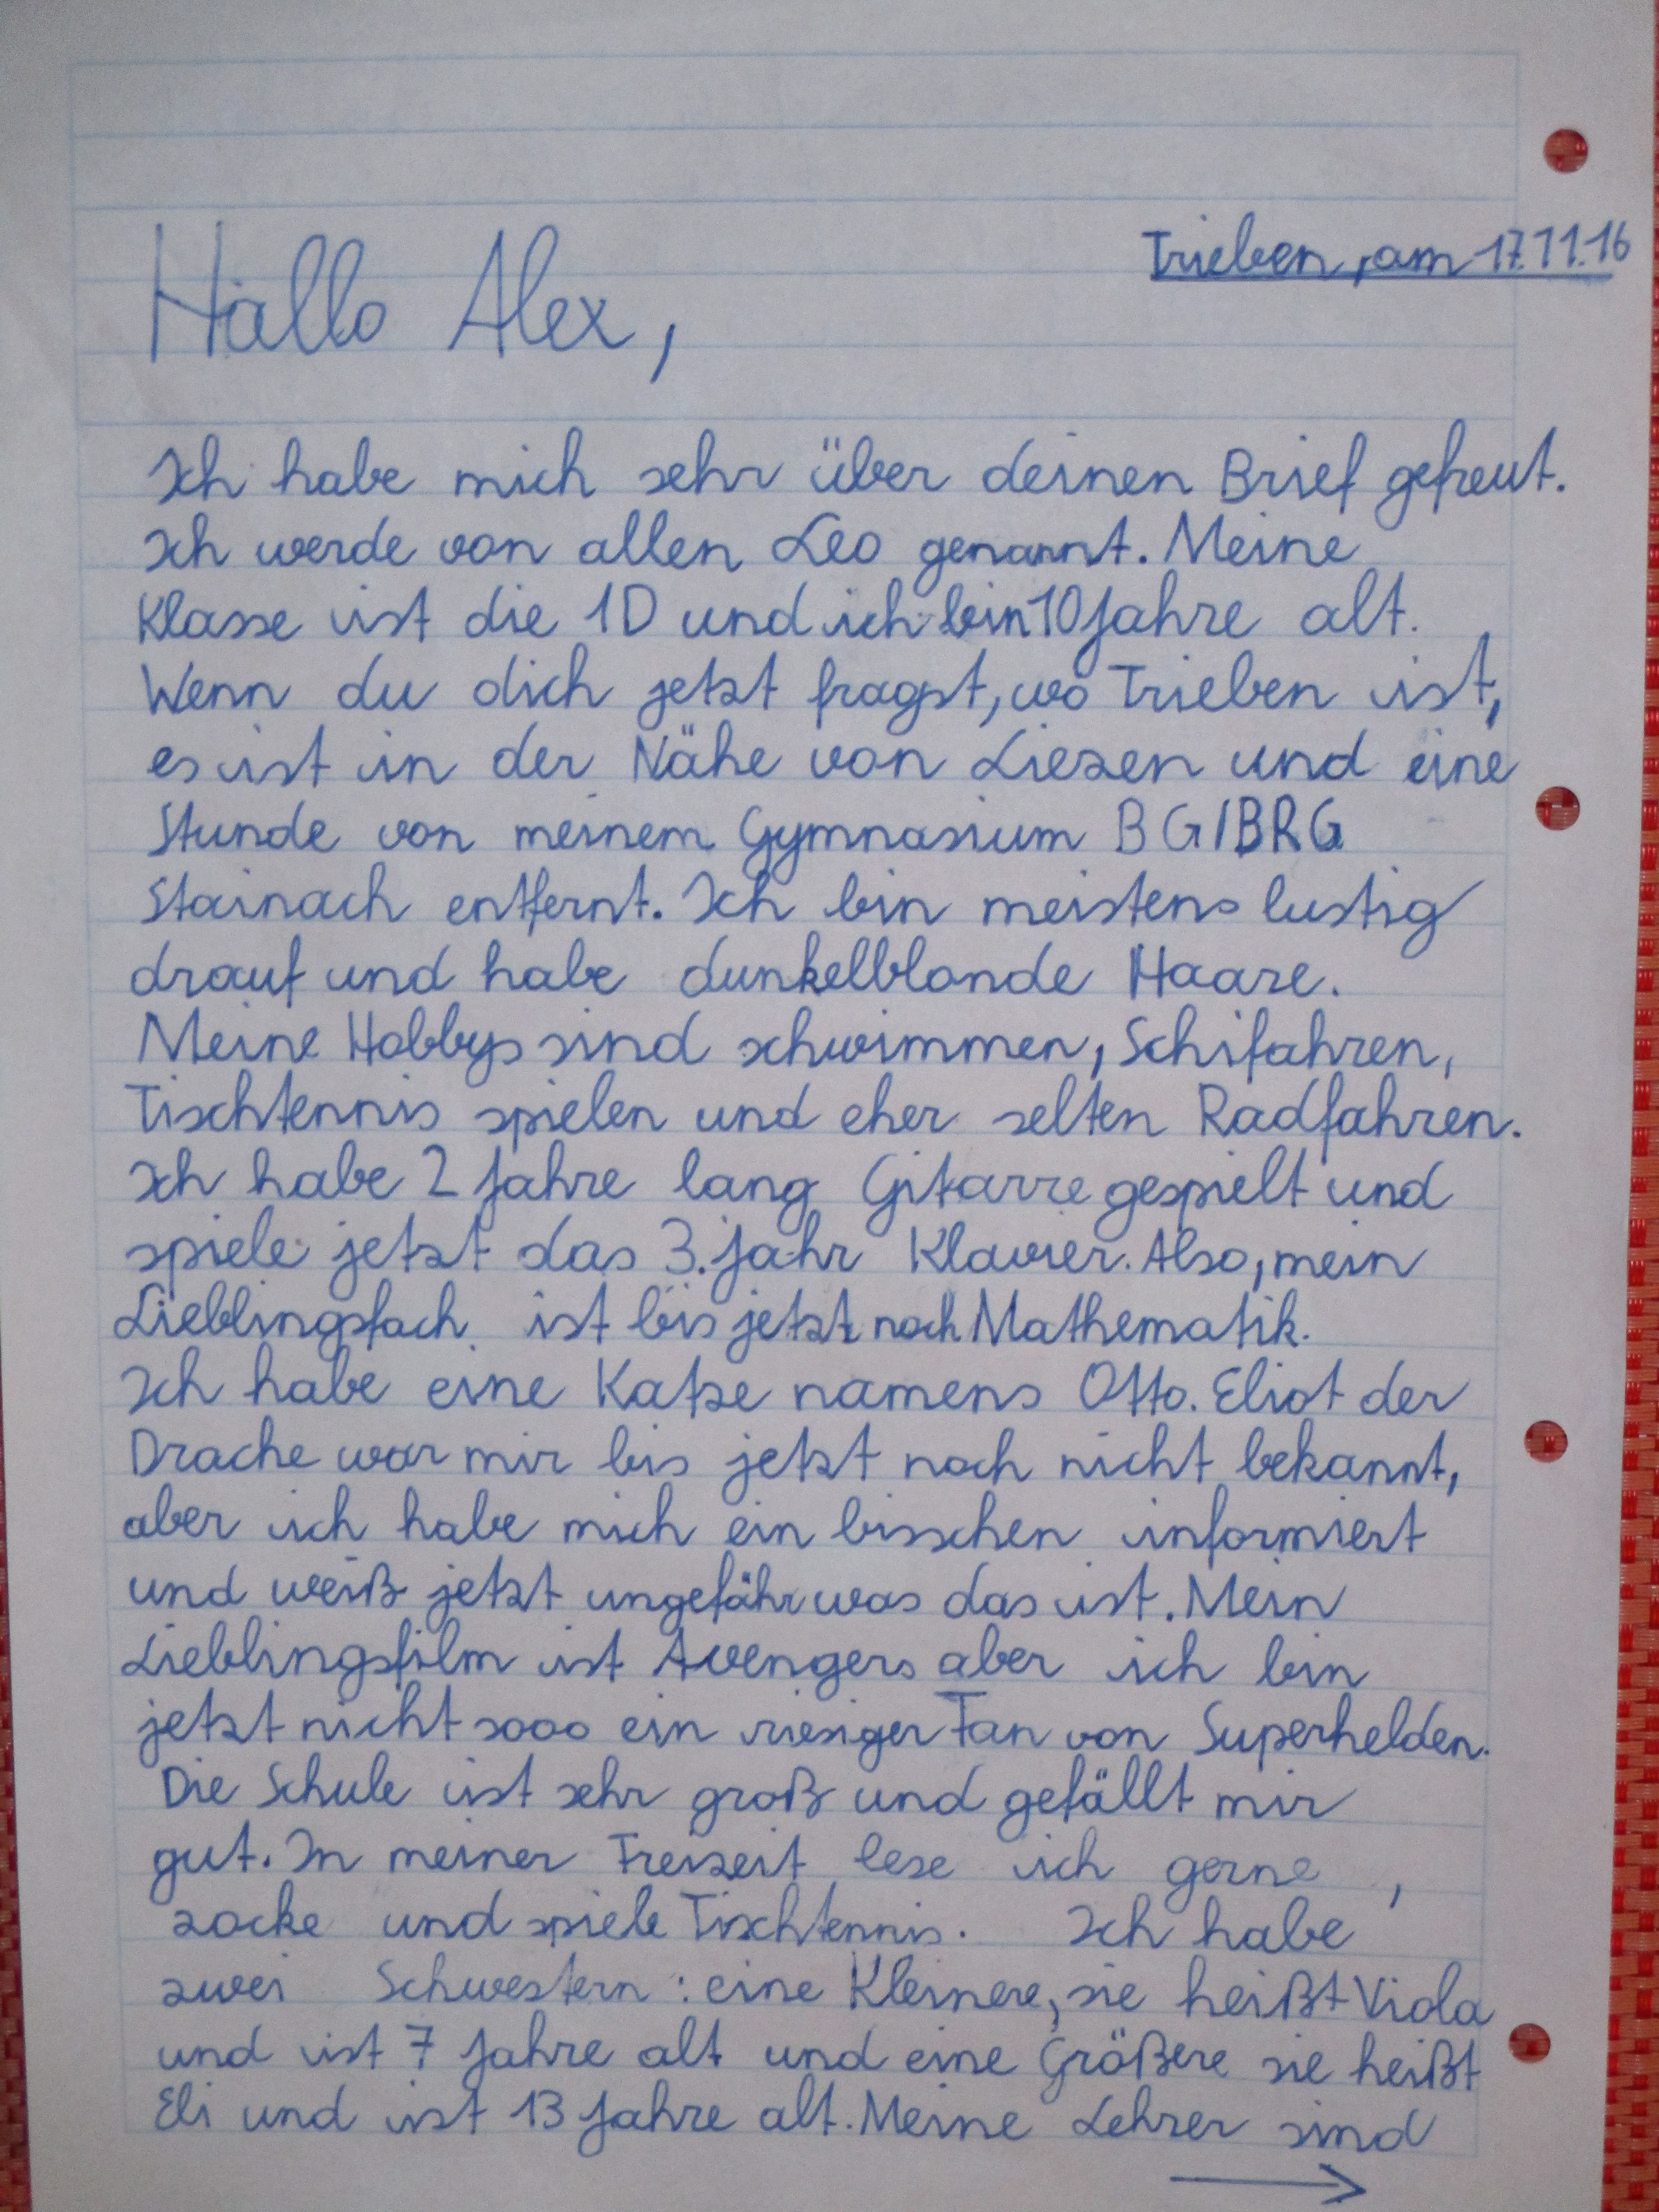 Trieben, am 17.11.16
Hallo Alex,
Ich habe mich sehr über deinen Brief gefreut.
Ich werde von allen Leo genannt. Meine
Klasse ist die 1D und ich bin 10 Jahre alt.
Wenn du dich jetzt fragst, wo Trieben ist,
es ist in der Nähe von Liezen und eine
Stunde von meinem Gymnasium BG/BRG
Stainach entfernt. Ich bin meistens lustig
drauf und habe dunkelblonde Haare.
Meine Hobbys sind schwimmen, Schifahren,
Tischtennis spielen und eher selten Radfahren.
Ich habe 2 Jahre lang Gitarre gespielt und
spiele jetzt das 3. Jahr Klavier. Also, mein
Lieblingsfach ist bis jetzt noch Mathematik.
Ich habe eine Katze namens Otto. Eliot der
Drache war mir bis jetzt noch nicht bekannt,
aber ich habe mich ein bisschen informiert
und weiß jetzt ungefähr was das ist. Mein
Lieblingsfilm ist Avengers aber ich bin
jetzt nicht sooo ein riesiger Fan von Superhelden.
Die Schule ist sehr groß und gefällt mir
gut. In meiner Freizeit lese ich gerne,
zocke und spiele Tischtennis. Ich habe
zwei Schwestern: eine Kleinere, sie heißt Viola
und ist 7 Jahre alt und eine Größere sie heißt
Eli und ist 13 Jahre alt. Meine Lehrer sind